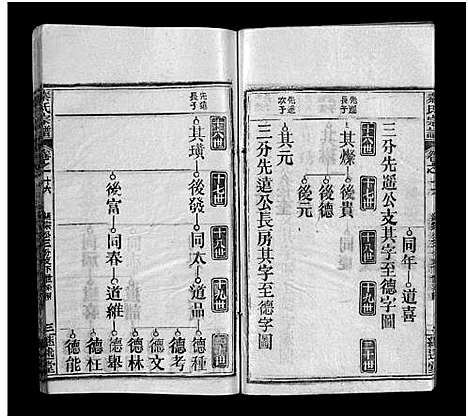 同年 道喜
三分先遙公支其字至德字圖
十六世 十七世 十八世 十九世 二十世
先遙長子 其㷍 後貴
後德
後元
先遙次子 其元
三分先遠公長房其字至德字圖
宗譜
卷之
十六世 十七世 十八世 十九世
先遠長子 其璜 後發 同太 道品 德種
德考
德文
德林
後富 同春 道維 德舉
德枉
德能
氏宗譜
卷之
三
堂